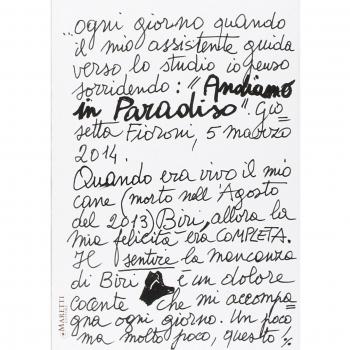 ..ogni giorno quando
il mio assistente guida
verso lo studio io penso
sorridendo: "Andiamo
in Paradiso". Gio=
setta Fioroni, 5 marzo
2014.
Quando era vivo il mio
cane (morto nell'Agosto
del 2013) Biri, allora la
mia felicità era COMPLETA.
Il sentire la mancanza
di Biri è un dolore
cocente che mi accompa=
gna ogni giorno. Un poco
ma molto poco, questo %
MARETTI